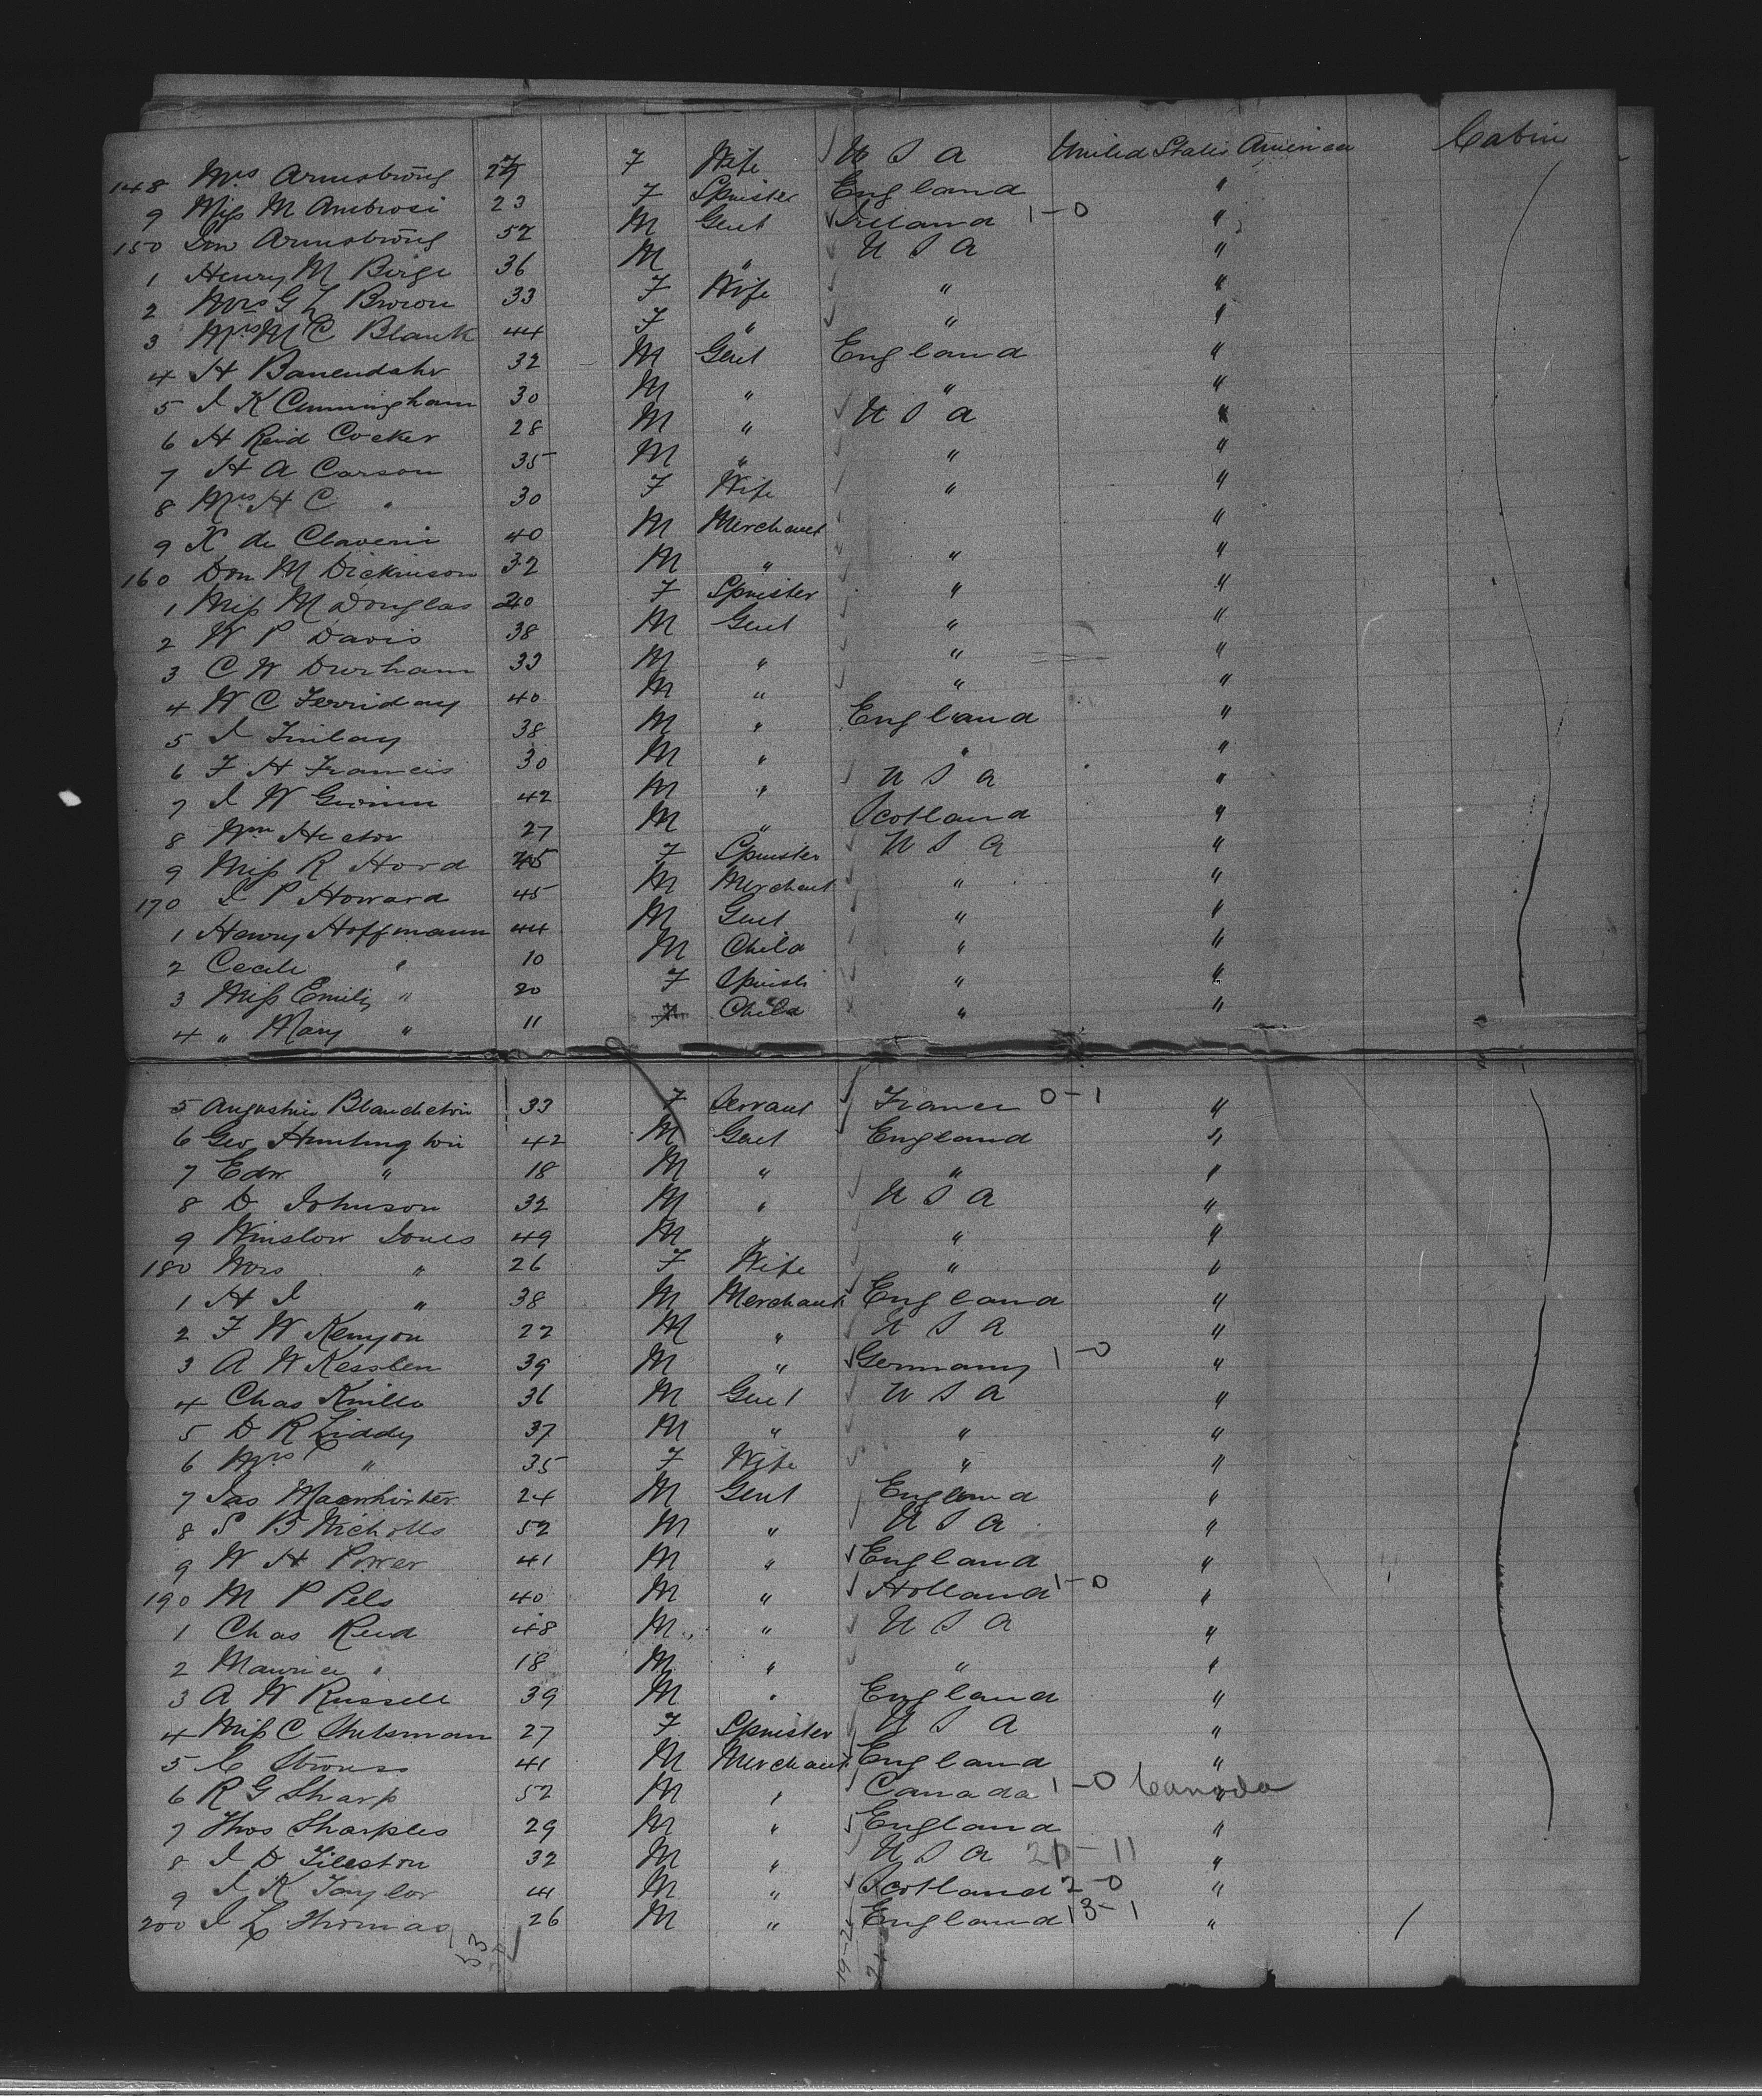 148 Mrs Armstrong 27 F Wife U S A United States America Cabin
9 Miss M Ambrosi 23 F Spinster England "
150 Don Armstrong 52 M Gent Ireland 1-0 "
1 Henry M Birge 36 M " U S A "
2 Mrs G L Brown 33 F Wife " "
3 Mrs M C Blank 44 F " " "
4 H Banendahr 32 M Gent England "
5 J K Cunningham 30 M " " "
6 H Reid Cocker 28 M " U S A "
7 H A Carson 35 M " " "
8 Mrs H C " 30 F Wife " "
9 K de Claverie 40 M Merchant "
160 Don M Dickinson 32 M " " "
1 Miss M Douglas 20 F Spinster " "
2 W P Davis 38 M Gent " "
3 C W Durham 33 M " " "
4 W C Ferriday 40 M " " "
5 J Finlay 38 M " England "
6 F H Francis 30 M " " "
7 J W Gwinn 42 M " U S A "
8 Wm Hector 27 M " Scotland "
9 Miss R Hord 45 F Spinster U S A "
170 J P Howard 45 M Merchant " "
1 Henry Hoffmann 44 M Gent " "
2 Cecile " 10 M Child " "
3 Miss Emily " 20 F Spinst "
4 " Mary " 11 Child " "
5 Augustine 33 F Servant France 0-1 "
6 Geo Huntington 42 M Gent England "
7 Edw " 18 M " " "
8 D Johnson 32 M " U S A "
9 Winslow Jones 49 M " " "
180 Mrs " 26 F Wife " "
1 H J " 38 M Merchant England "
2 F W Kenyon 22 M " U S A "
3 A W Kesslen 39 M " Germany 1-0 "
4 Chas 36 M Gent U S A "
5 D R Liddy 37 M " " "
6 Mrs " 35 F Wife " "
7 Jas Macwhirter 24 M Gent England "
8 S B Nicholls 52 M " U S A "
9 W H Power 41 M " England "
190 M P Pels 40 M " Holland 1-0 "
1 Chas Reid 48 M " U S A "
2 Maurice " 18 M " " "
3 A W Russell 39 M " England "
4 Miss C 27 F Spinster U S A "
5 C Strauss 41 M Merchant England "
6 R G Sharp 52 M " Canada 1-0 Canada "
7 Thos Sharples 29 M " England "
8 J D Tileston 32 M " U S A 21-11 "
9 J K Taylor 41 M " Scotland 2-0 "
200 J L Thomas 26 M " England 13-1 "
53 19-2